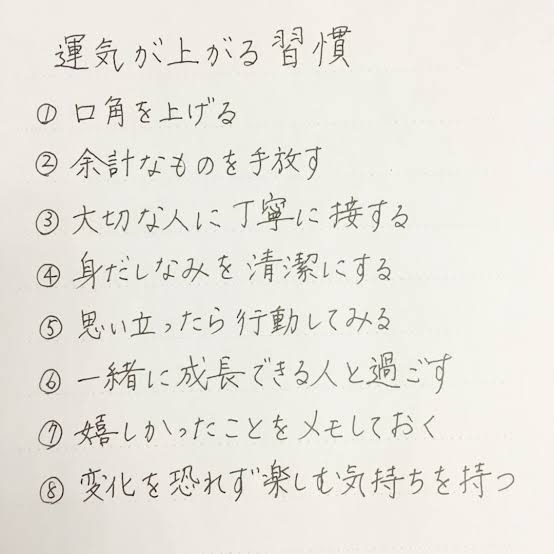 運気が上がる習慣
① 口角を上げる
② 余計なものを手放す
③ 大切な人に丁寧に接する
④ 身だしなみを清潔にする
⑤ 思い立ったら行動してみる
⑥ 一緒に成長できる人と過ごす
⑦ 嬉しかったことをメモしておく
⑧ 変化を恐れず楽しむ気持ちを持つ